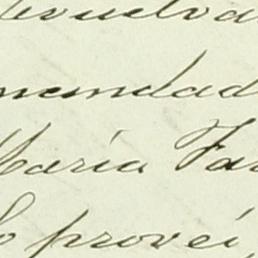 devuelva
mendad
Maria Fa
Lo proveí